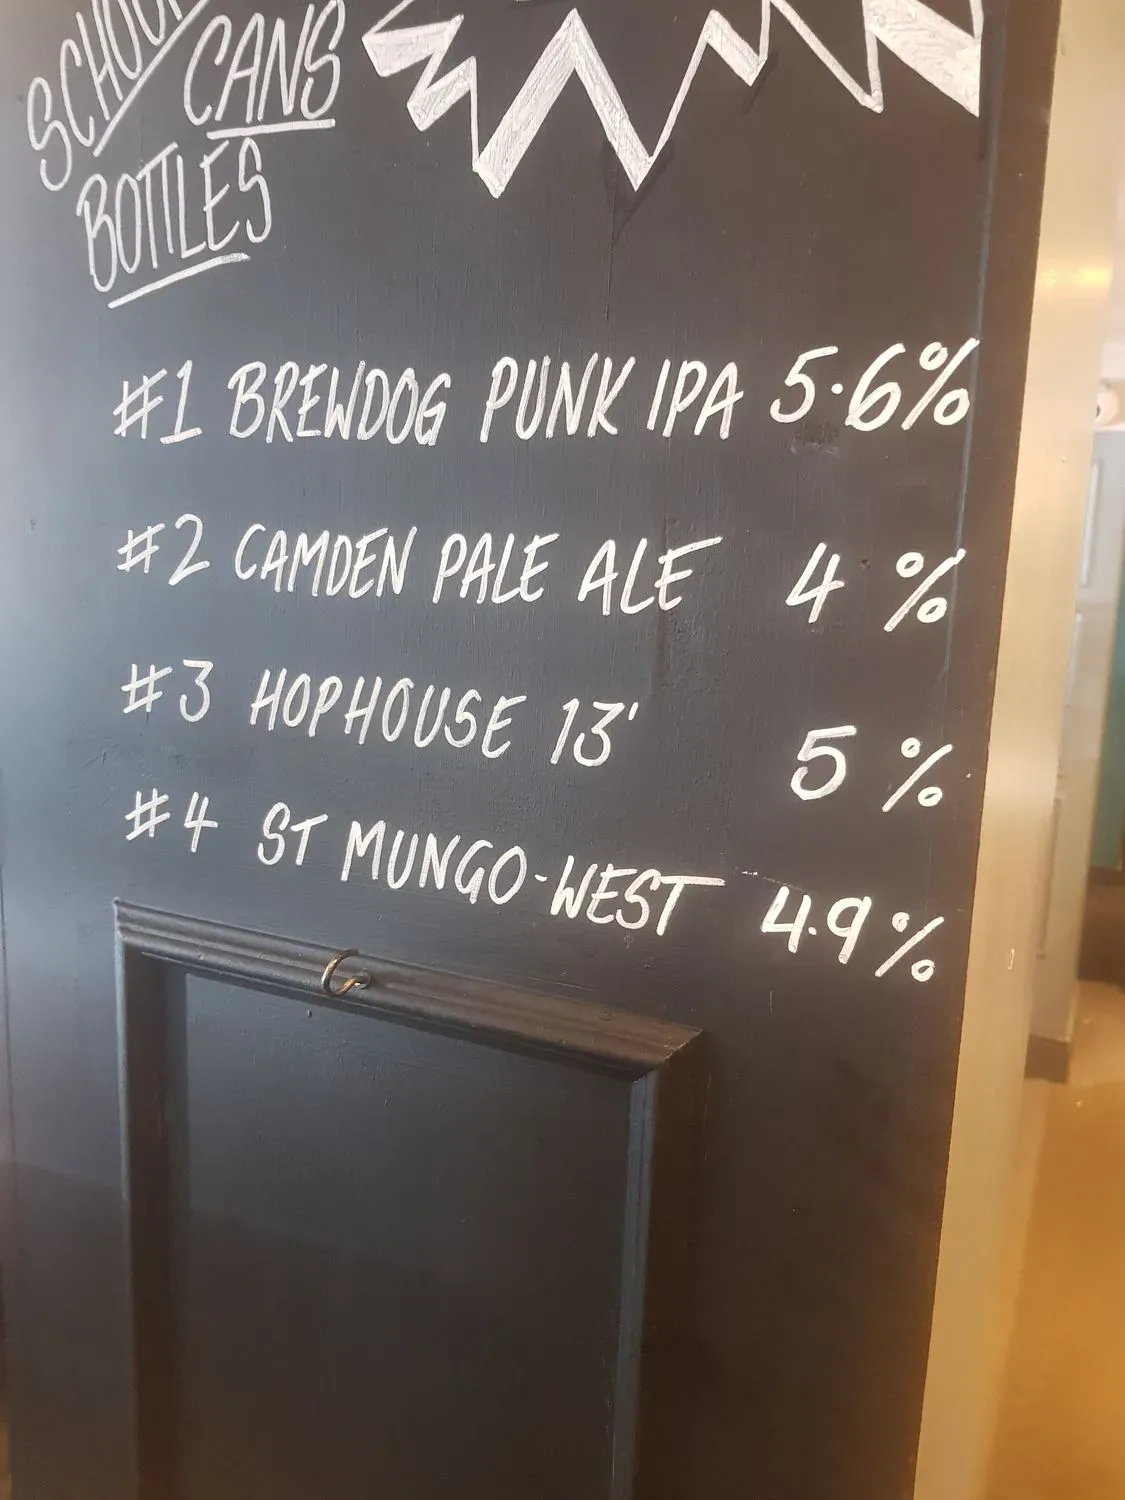 CANS
BOTTLES
#1 BREWDOG PUNK IPA 5.6%
#2 CAMDEN PALE ALE 4%
#3 HOPHOUSE 13' 5%
#4 ST MUNGO-WEST 4.9%